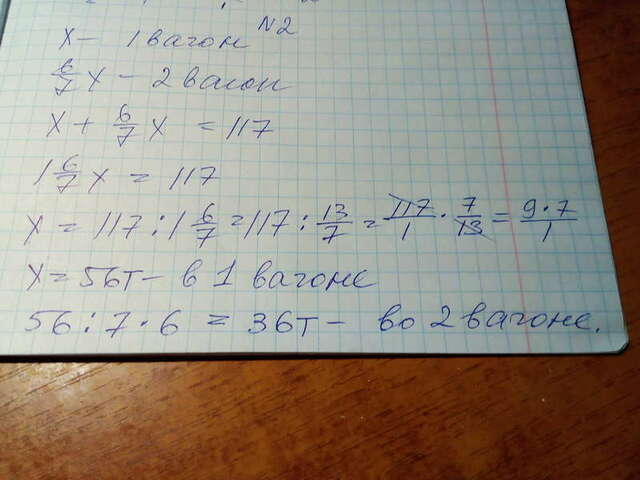 N2
x - 1 вагон
6/7 x - 2 вагон
x + 6/7 x = 117
1 6/7 x = 117
x = 117 : 1 6/7 = 117 : 13/7 = 117/1 · 7/13 = 9·7/1
x = 56т - в 1 вагоне
56 : 7 · 6 = 36т - во 2 вагоне.